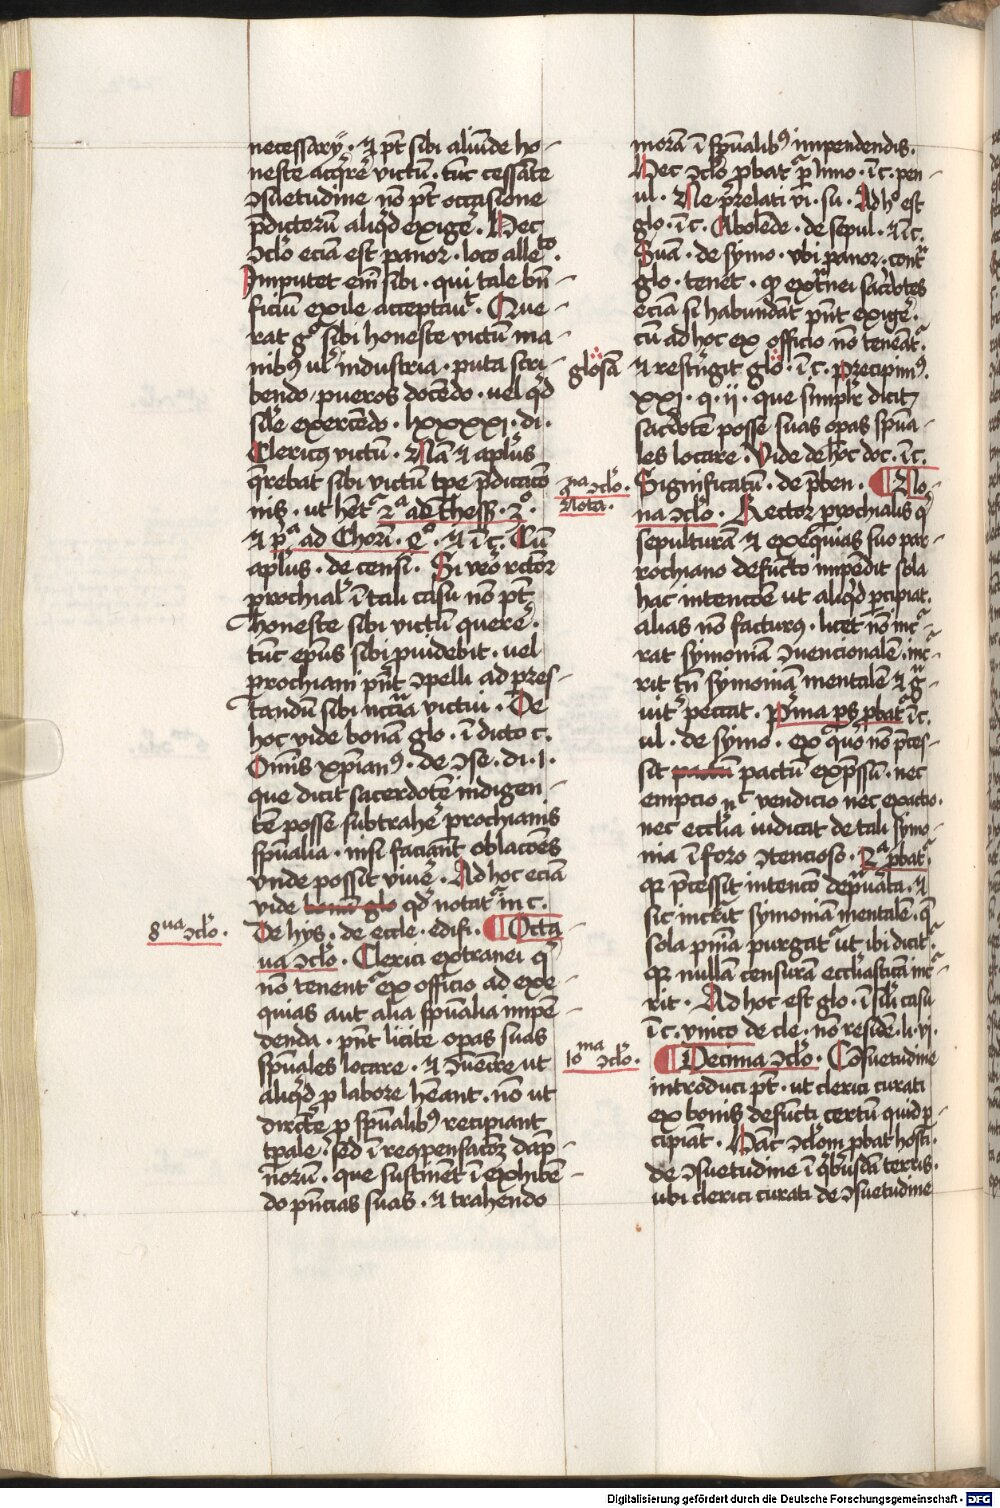 necessarijs · ⁊ pt̄ sibi aliūde ho-
neste acq̄rere victū · tūc cessāte
ꝯsuetudine nō pt̄ occasione
p̄dictorū aliqͥd exiger̄ · Hec
ꝯclo eciā est panor · loco alleto ·
Imputet em̄ sibi · qui tale bn̄-
ficiū exile acceptauͭ · Que-
rat gͦ sibi honeste victū ma-
nibꝰ ul̓ industria · puta scri-
bendo / pueros docēdo · vel qͥd
sil̓e exercēdo · lxxxxi · di ·
Clericꝰ victū · Nā ⁊ apl̓us
q̄rebat sibi victū tpe p̄dicacō-
nis · ut het̄ᷓ 2ᵃ ad Thess · 2º ·
⁊ pᵃ ad Chorī · 9º · ⁊ ī c · Cū
apl̓us · de censi · Si vero rc̄tor
ꝑrochial̓ ī tali casu nō pt̄
honeste sibi victū querer̄ ·
tūc ep̄us sibi ꝓuidebit · vel
ꝑrochiani pn̄t ꝯpelli ad p̄res-
tandū sibi nccͥia victui · De
hoc vide bonā glo · ī dicto c ·
Oīnis xp̄ianꝰ · de ꝯse · di · j ·
que dicit sacerdotē indigen-
tē posse subtraher̄ ꝑrochianis
spūalia · nisi faciant oblacōes
vnde possit viuer̄ · Ad hoc eciā
vide bonā glo qd̄ notatᷓ in c ·
De hys · de eccle · edifi · ¶ Octa
ua ꝯclo · Clerici extranei qͥ
nō tenentᷓ ex officio ad exe-
quias aut alia spūalia impē-
denda · pn̄t licite opas suas
spūales locare · ⁊ ꝯuēire ut
aliqͥd ꝓ labore heant · nō ut
dirc̄te ꝓ spūalibꝰ recipiant
tp̄ale · sed ī recōpensacōꝫ dāp-
norū · que sustinēt ī exhibē-
do pn̄cias suas · ⁊ trahendo
8ᵘᵃ ꝯclo ·
morā ī spūalibꝰ impendendis ·
Hec ꝯclo ꝓbatᷓ ꝑ Inno · ī c · pen-
ul · Ne p̄relati vi · su · Ad hͦ est
glo · ī c · Abolēde · de sepul · ⁊ ī c ·
Suā · de symo · vbi panor · cont̄ᷓ
glo · tenet · ꝙ extͣnei sac̄dotes
eciā si habundāt pn̄t exiger̄ ·
cū ad hoc ex officio nō tenēatᷓ ·
⁊ restͥngit glo · ī c · Precipimꝰ ·
xxi · q · ii · que simplr̄ dicit
sac̄dotē posse suas opas spūa-
les locare · Vide de hͦ doc · ī c ·
Significatū · de p̄ben · ¶ No-
na ꝯclo · Rector ꝑrochialis qͥ
sepulturā ⁊ exequias suo par-
rochiano defuncto impēdit sola
hac intencōe ut aliqͥd ꝑcipiat ·
alias nō facturꝰ · licet nō incͬ-
rat symoniā ꝯuencionalē · incͬ-
rit tn̄ symoniā mentalē ⁊ gͣ-
uitͬ peccat · Pͥma ps̄ ꝓbatᷓ ī c ·
ul · de symo · ex quo nō p̄ces-
sit pactū pactū exp̄ssū · nec
empcio nͨ vendicio nec exactio ·
nec ecclia iudicat de tali symo-
nia ī foro ꝯtencioso · 2ᵃ ꝓbatᷓ ·
qꝛ p̄cessit intencō dep̄uata · ⁊
sic incͬrit symoniā mentalē · q̄
sola pn̄ia purgatᷓ ut ibi dicitᷓ ·
qꝛ nullā censurā eccliasticā incͬ-
rit · Ad hoc est glo · ī sil̓i casu
ī c · vnico de cle · nō residē · li · vi ·
¶ Decima ꝯclo · Cōsuetudine
introduci pt̄ · ut clerici curati
ex bonis defuncti certū quid ꝑ-
cipiāt · Hāc ꝯclom ꝓbat hosti ·
de ꝯsuetudine ī qͥbusdā terris ·
ubi clerici curati de ꝯsuetudine
glosā
9ⁿᵃ ꝯclo ·
Nota ·
10ᵐᵃ ꝯclo ·
Digitalisierung gefördert durch die Deutsche Forschungsgemeinschaft - DFG